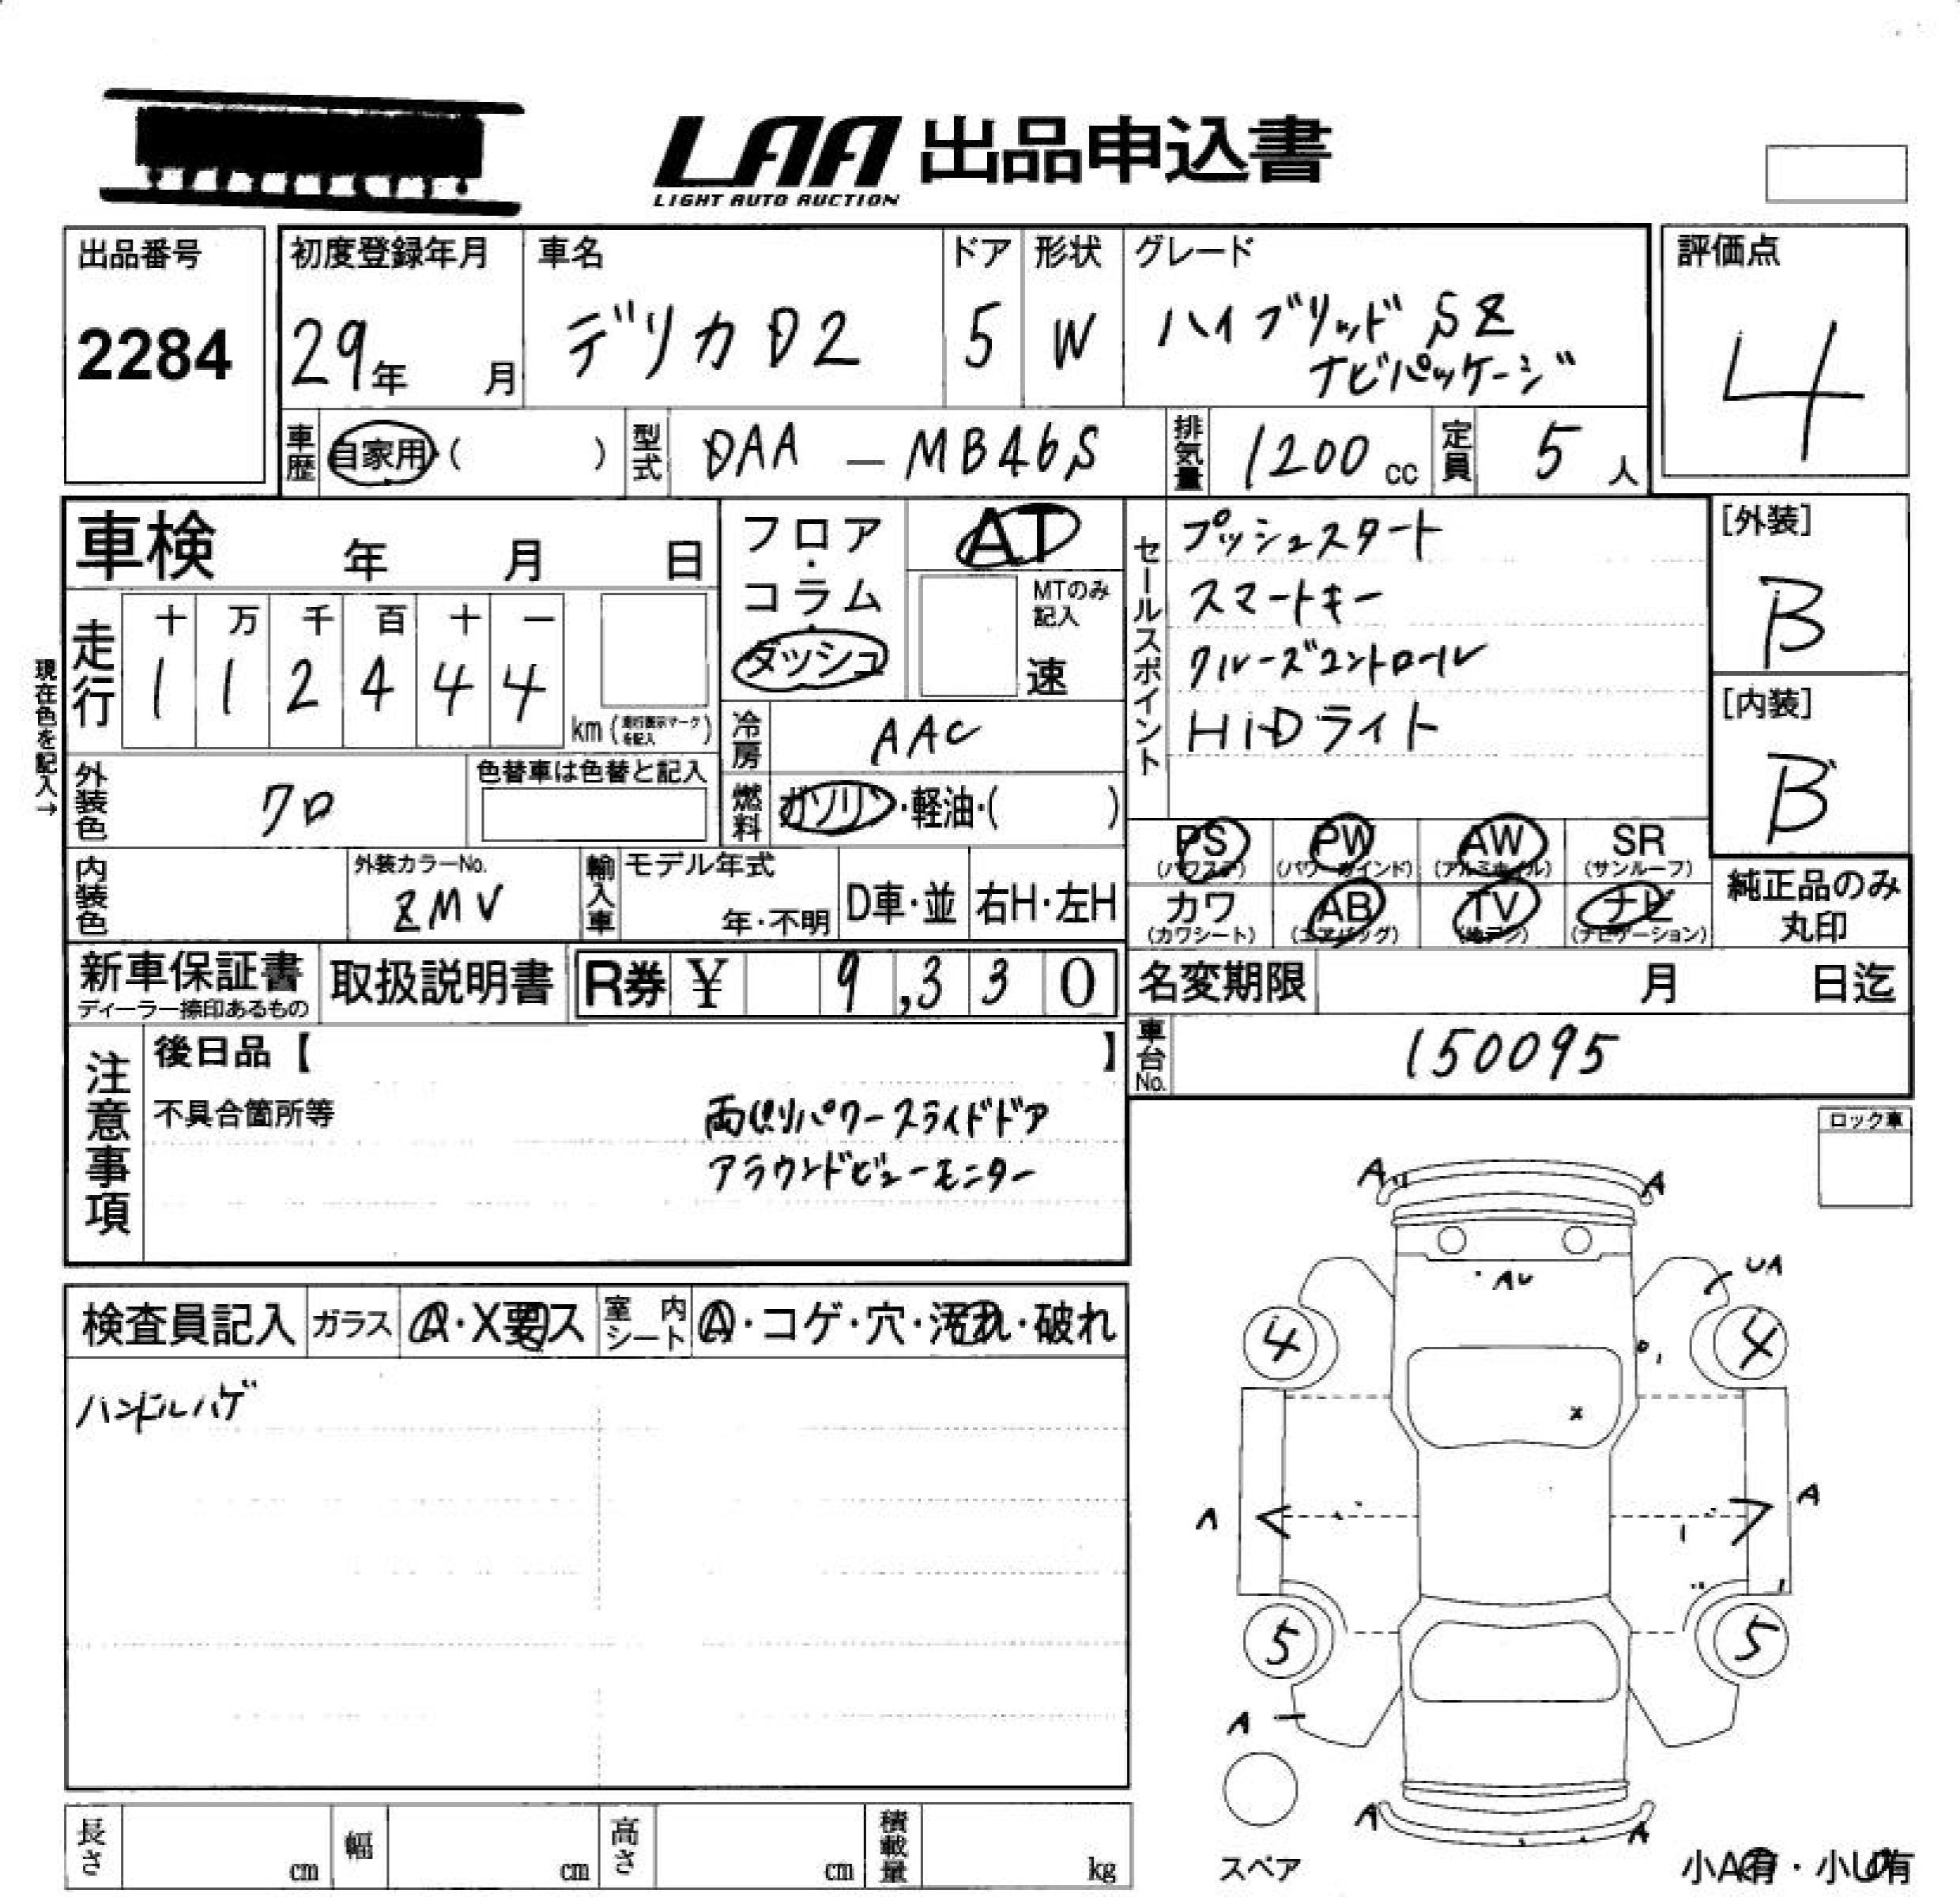 LAA 出品申込書
LIGHT AUTO AUCTION
出品番号
2284
初度登録年月
29年 月
車名
デリカD2
ドア
5
形状
W
グレード
ハイブリッドSZ
ナビパッケージ
評価点
4
車歴 自家用・( )
型式 DAA — MB46S
排気量 1200 cc
定員 5 人
車検 年 月 日
走行
十 万 千 百 十 一
1 1 2 4 4 4
km (走行表示マークを記入)
現在色を記入→
外装色 クロ
色替車は色替と記入
内装色
外装カラーNo.
ZMV
フロア・
コラム・
ダッシュ
AT
MTのみ記入
速
冷房 AAC
燃料 ガソリン・軽油・( )
輸入車 モデル年式
年・不明
D車・並
右H・左H
セールスポイント
プッシュスタート
スマートキー
クルーズコントロール
HiDライト
[外装]
B
[内装]
B
PS (パワステ)
PW (パワーウインド)
AW (アルミホイル)
SR (サンルーフ)
カワ (カワシート)
AB (エアバッグ)
TV (地デジ)
ナビ (ナビゲーション)
純正品のみ
丸印
新車保証書
ディーラー捺印あるもの
取扱説明書
R券 ¥ 9,330
名変期限 月 日迄
車台No. 150095
注意事項
後日品【 】
不具合箇所等
両側パワースライドドア
アラウンドビューモニター
ロック車
検査員記入
ガラス A・X要ス
室内シート A・コゲ・穴・汚れ・破れ
ハンドルハゲ
A A
AU
UA
4 4
X
A A
5 5
A
A A
スペア
小A有・小U有
長さ cm
幅 cm
高さ cm
積載量 kg